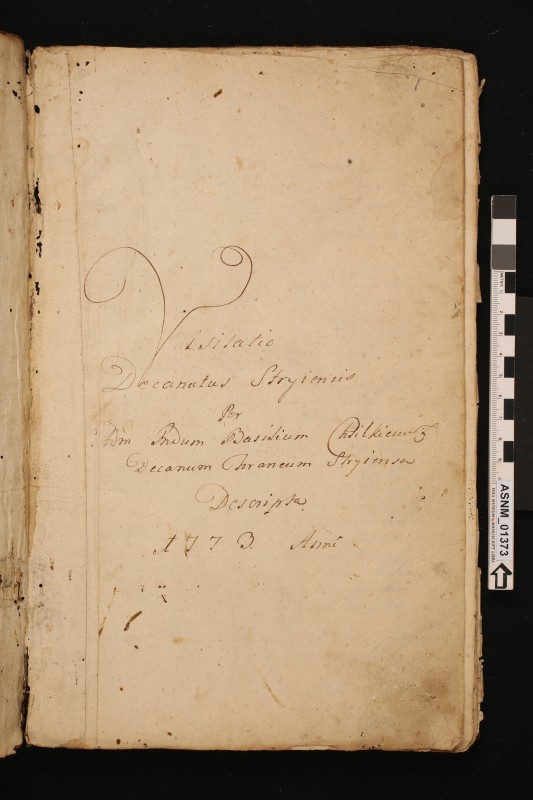 Visitatio
Decanatus Stryiensis
Per
Adm Rndum Basilium
Decanum Stryiensem
Descripta
1773 Anni
ASNM_01373